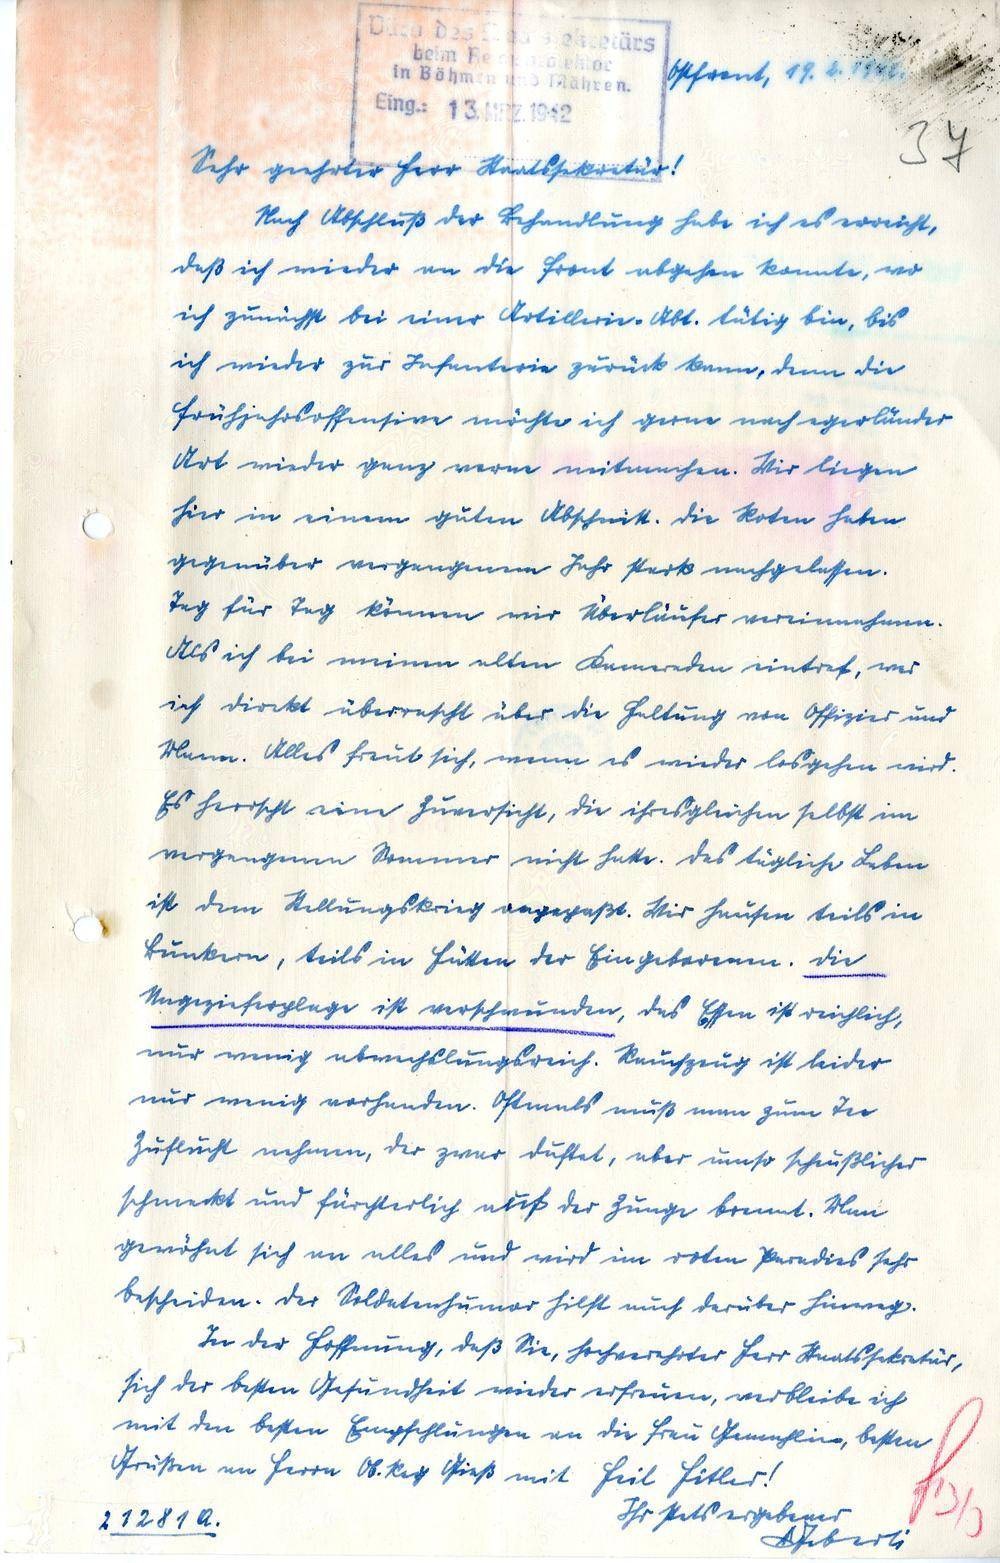 Büro des Staatssekretärs
beim Reichsprotektor
in Böhmen und Mähren.
Eing.: 13. MRZ. 1942
Ostfront, 19. 2. 1942.
37
Sehr geehrter Herr Staatssekretär!
Nach Abschluß der Behandlung habe ich es erreicht,
daß ich wieder an die Front abgehen konnte, wo
ich zunächst bei einer Artillerie-Abt. tätig bin, bis
ich wieder zur Infanterie zurück kann, denn die
Frühjahrsoffensive möchte ich gerne nach egerländer
Art wieder ganz vorne mitmachen. Wir liegen
hier in einem guten Abschnitt. Die Roten haben
gegenüber vergangenem Jahr stark nachgelassen.
Tag für Tag können wir Überläufer vereinnahmen.
Als ich bei meinen alten Kameraden eintraf, war
ich direkt überrascht über die Haltung von Offizier und
Mann. Alles freut sich, wenn es wieder losgehen wird.
Es herrscht eine Zuversicht, die ihresgleichen selbst im
vergangenen Sommer nicht hatte. Das tägliche Leben
ist dem Stellungskrieg angepaßt. Wir hausen teils in
Bunkern, teils in Hütten der Eingeborenen. Die
Ungezieferplage ist verschwunden, das Essen ist reichlich,
nur wenig abwechslungsreich. Rauchzeug ist leider
nur wenig vorhanden. Oftmals muß man zum Tee
Zuflucht nehmen, der zwar duftet, aber umso scheußlicher
schmeckt und fürchterlich auf der Zunge brennt. Man
gewöhnt sich an alles und wird im roten Paradies sehr
bescheiden. Der Soldatenhumor hilft auch darüber hinweg.
In der Hoffnung, daß Sie, hochverehrter Herr Staatssekretär,
sich der besten Gesundheit wieder erfreuen, verbleibe ich
mit den besten Empfehlungen an die Frau Gemahlin, besten
Grüßen an Herrn Ob. Reg Gieß mit Heil Hitler!
Ihr stets ergebener
21281 A.